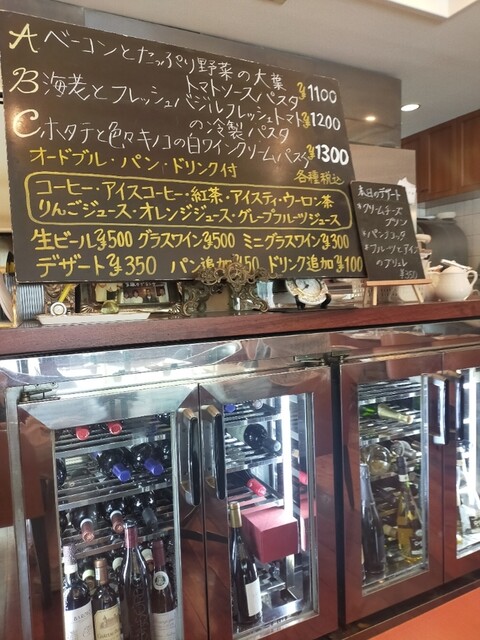 A.ベーコンとたっぷり野菜の大葉
トマトソースパスタ ¥1100
B.海老とフレッシュバジルフレッシュトマト
の冷製パスタ ¥1200
C.ホタテと色々キノコの白ワインクリームパスタ ¥1300
オードブル・パン・ドリンク付 各種税込
コーヒー・アイスコーヒー・紅茶・アイスティ・ウーロン茶
りんごジュース・オレンジジュース・グレープフルーツジュース
生ビール¥500 グラスワイン¥500 ミニグラスワイン¥300
デザート¥350 パン追加¥50 ドリンク追加¥100
本日のデザート
*クリームチーズ
プリン
*パンナコッタ
のブリュレ
¥350